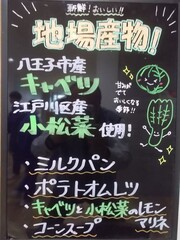 新鮮!おいしい!!
地場産物!
八王子市産
キャベツ
江戸川区産
小松菜使用!
甘みがでて
おいしくなる
季節!!
・ミルクパン
・ポテトオムレツ
・キャベツと小松菜のレモン
マリネ
・コーンスープ